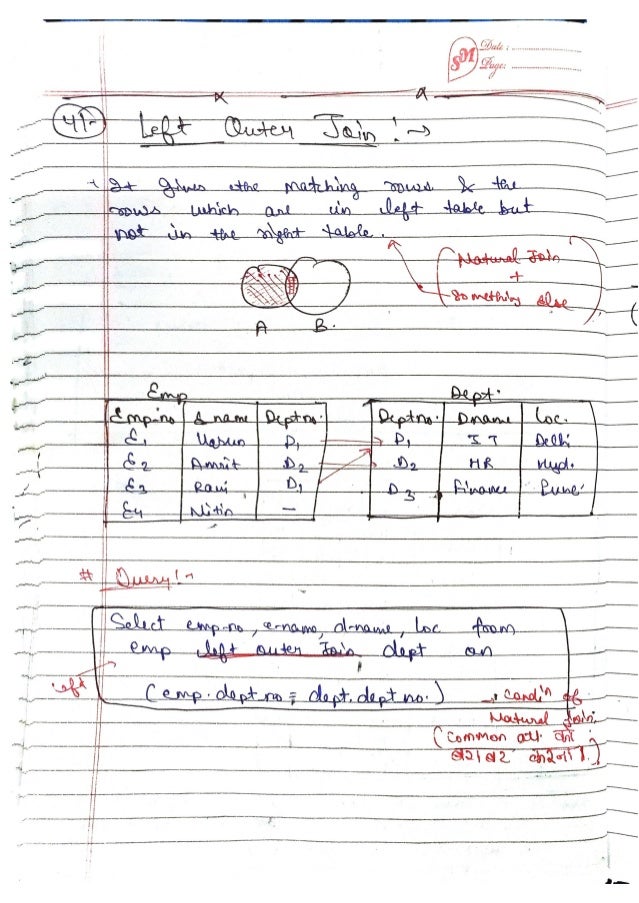 SM Date :
Page:
41- Left Outer Join! →
It gives the matching rows & the
rows which are in left table but
not in the right table.
(Natural Join
+
something else)
A B.
Emp
Emp-no E name Deptno.
E1 Varun D1
E2 Amrit D2
E3 Ravi D1
E4 Nitin —
Dept.
Deptno. Dname Loc.
D1 IT Delhi
D2 HR Hyd.
D3 Finance Pune
# Query! →
Select emp-no, e-name, d-name, Loc from
emp left outer Join dept on
left
(emp.dept-no = dept.dept no.)
→ condn of
Natural Join.
(common att. को
बराबर करना।)